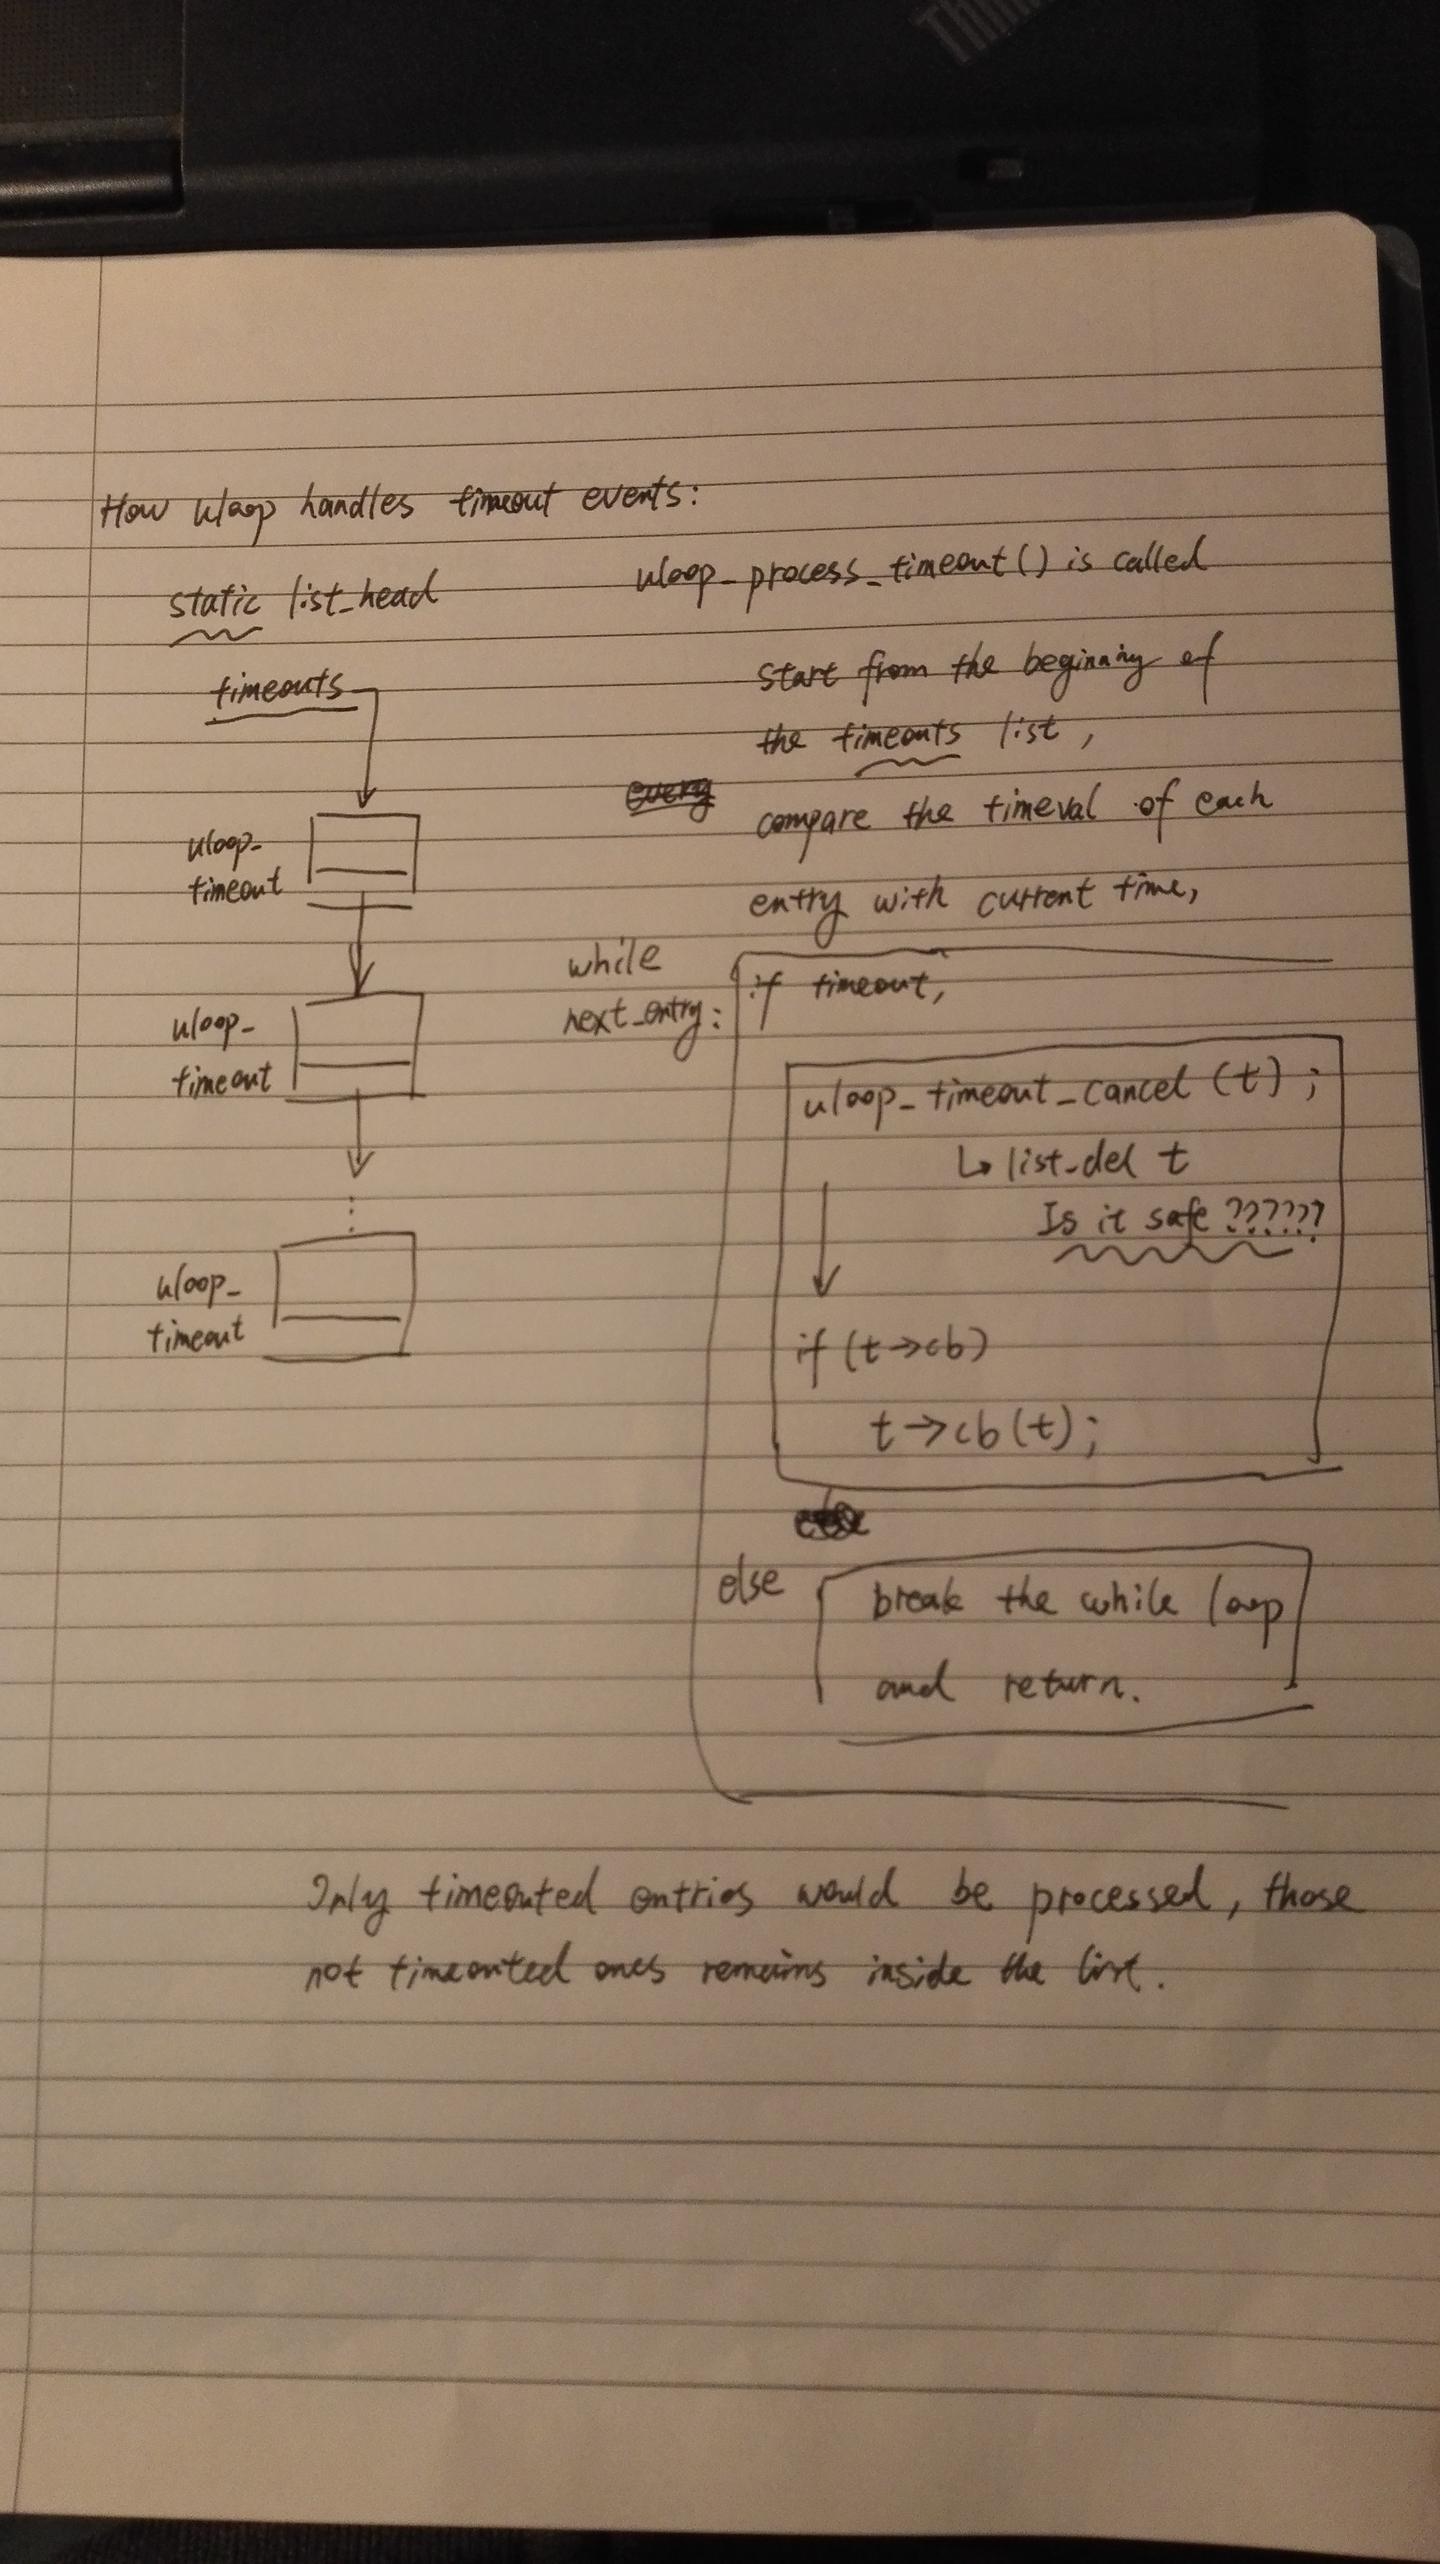 Thin
How uloop handles timeout events:
static list_head
timeouts
uloop_
timeout
uloop_
timeout
⋮
uloop_
timeout
uloop_process_timeout() is called
start from the beginning of
the timeouts list,
every
compare the timeval of each
entry with current time,
while
next_entry:
if timeout,
uloop_timeout_cancel (t);
↳ list_del t
Is it safe ??????
if (t→cb)
t→cb(t);
else
else
break the while loop
and return.
Only timeouted entries would be processed, those
not timeouted ones remains inside the list.